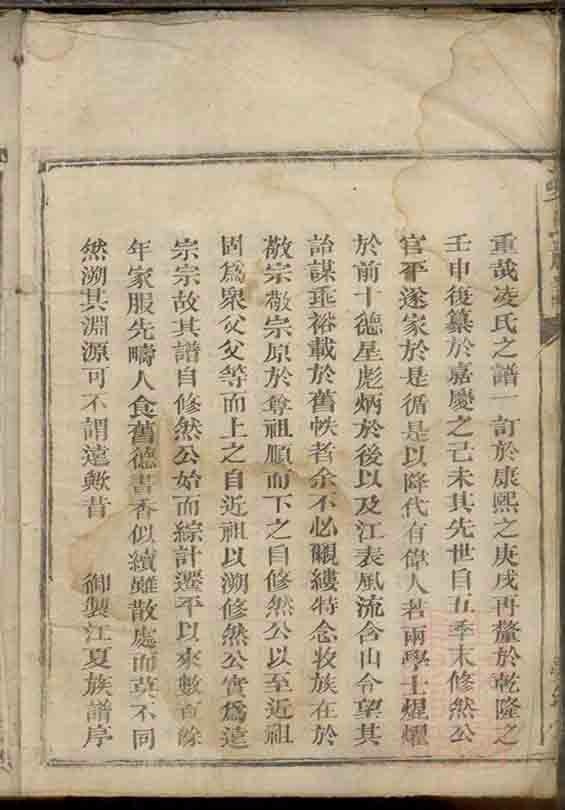 重哉凌氏之譜一訂於康熙之庚戌再釐於乾隆之
壬申後纂於嘉慶之己未其先世自五季末修然公
官平遂家於是循是以降代有偉人若兩學士焜燿
於前十德星彪炳於後以及江表風流含山令望其
詒謀垂裕載於舊帙者余不必覼縷特念收族在於
敬宗敬宗原於尊祖順而下之自修然公以至近祖
固為衆父父等而上之自近祖以溯修然公實為遠
宗宗故其譜自修然公始而綜計遷平以來數百餘
年家服先疇人食舊德書香似續雖散處而莫不同
然溯其淵源可不謂遠歟昔　御製江夏族譜序